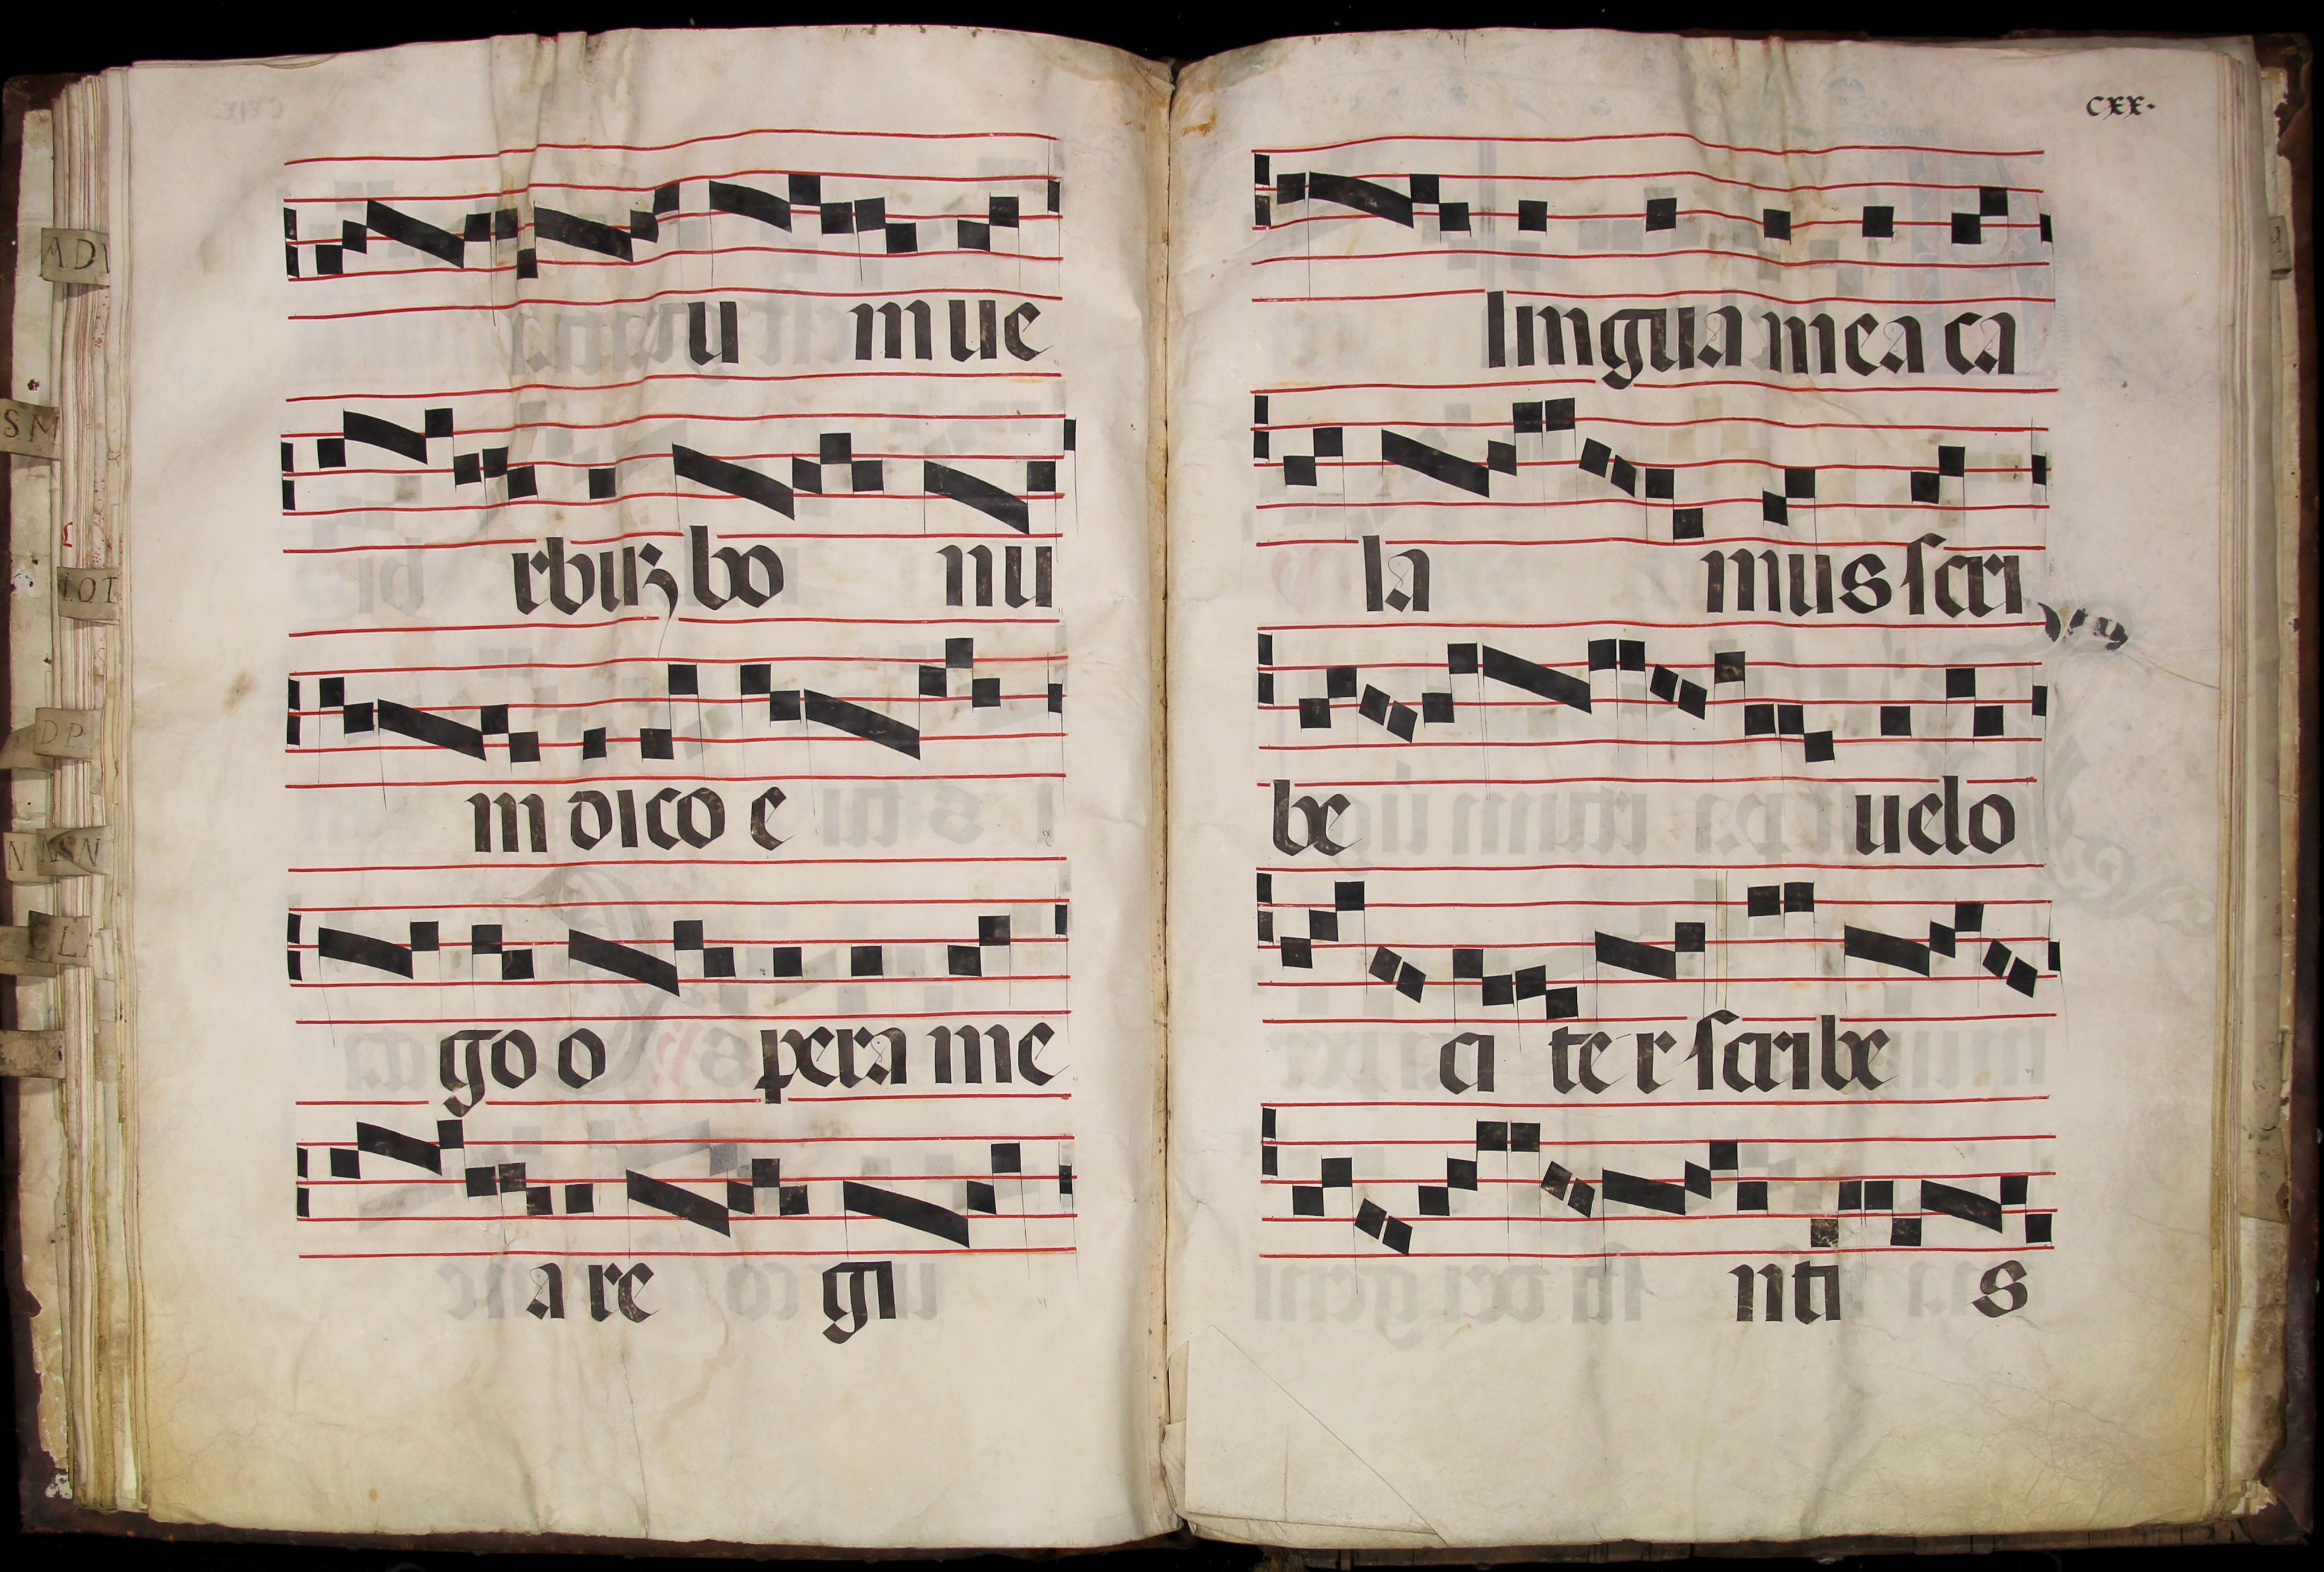 ADI
SM
IOI
DP
N NSN
L
u m ue
rbuȝ bo nu
m dico e
go o pera me
a re gi
cxx.
lingua mea ca
la mus scri
be uelo
ci te r scribe
nti s